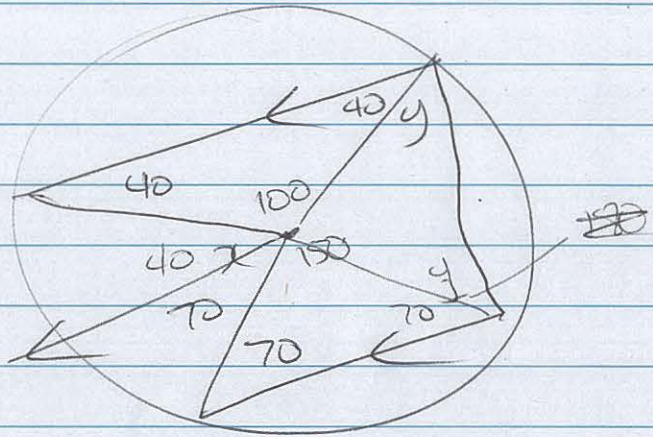 40 y
40
100
40 x 150
y
70
70
70